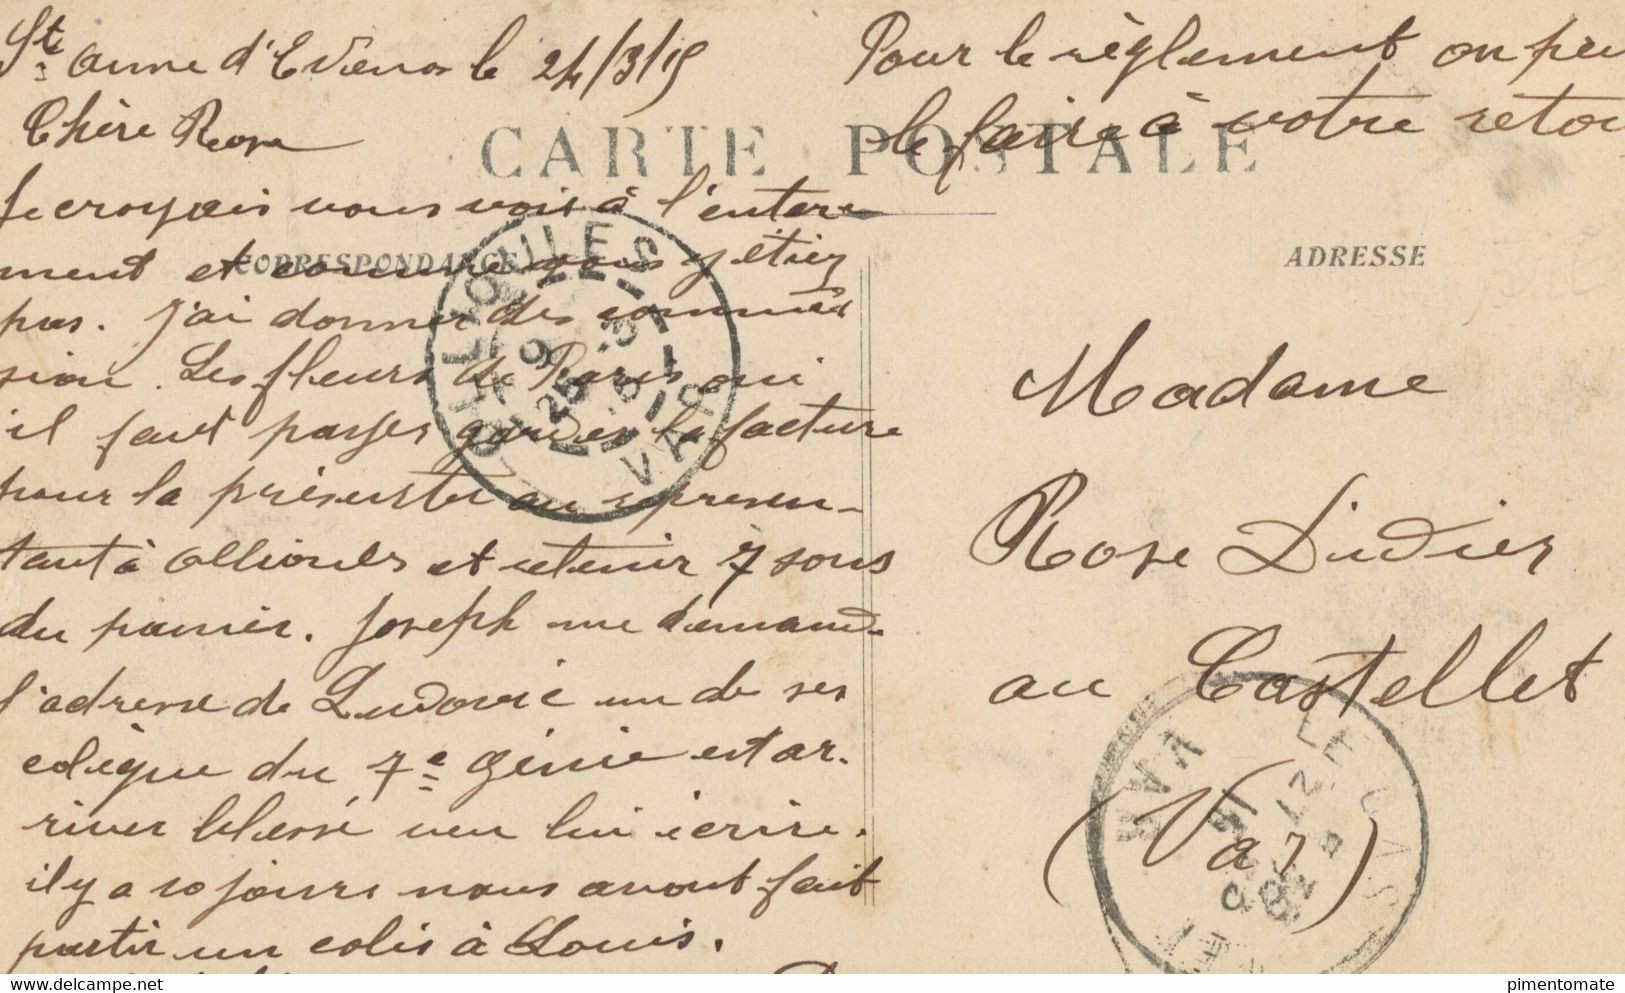 Ste anne d'Evenos le 24/3/15
Chère Rose
Je croyais vous voir à l'enterre
ment et comme vous y étiez
pas. J'ai donner des commis
sion. Les fleurs de Paris qui
il faut payer garder la facture
pour la présenter au représen-
tant à Ollioules et retenir 7 sous
du panier. Joseph me demande
l'adresse de Ludovic un de ses
colègue du 7e génie est ar.
river blessé veu lui écrire.
il y a 10 jours nous avont fait
partir un colis à Louis.
Pour le règlement on peu
le faire à votre retou
CARTE POSTALE
CORRESPONDANCE
ADRESSE
Madame
Rose Didier
au Castellet
(Var)
OLLIOULES
25 -3
15
VAR
LE
VAR
delcampe.net
pimentomate